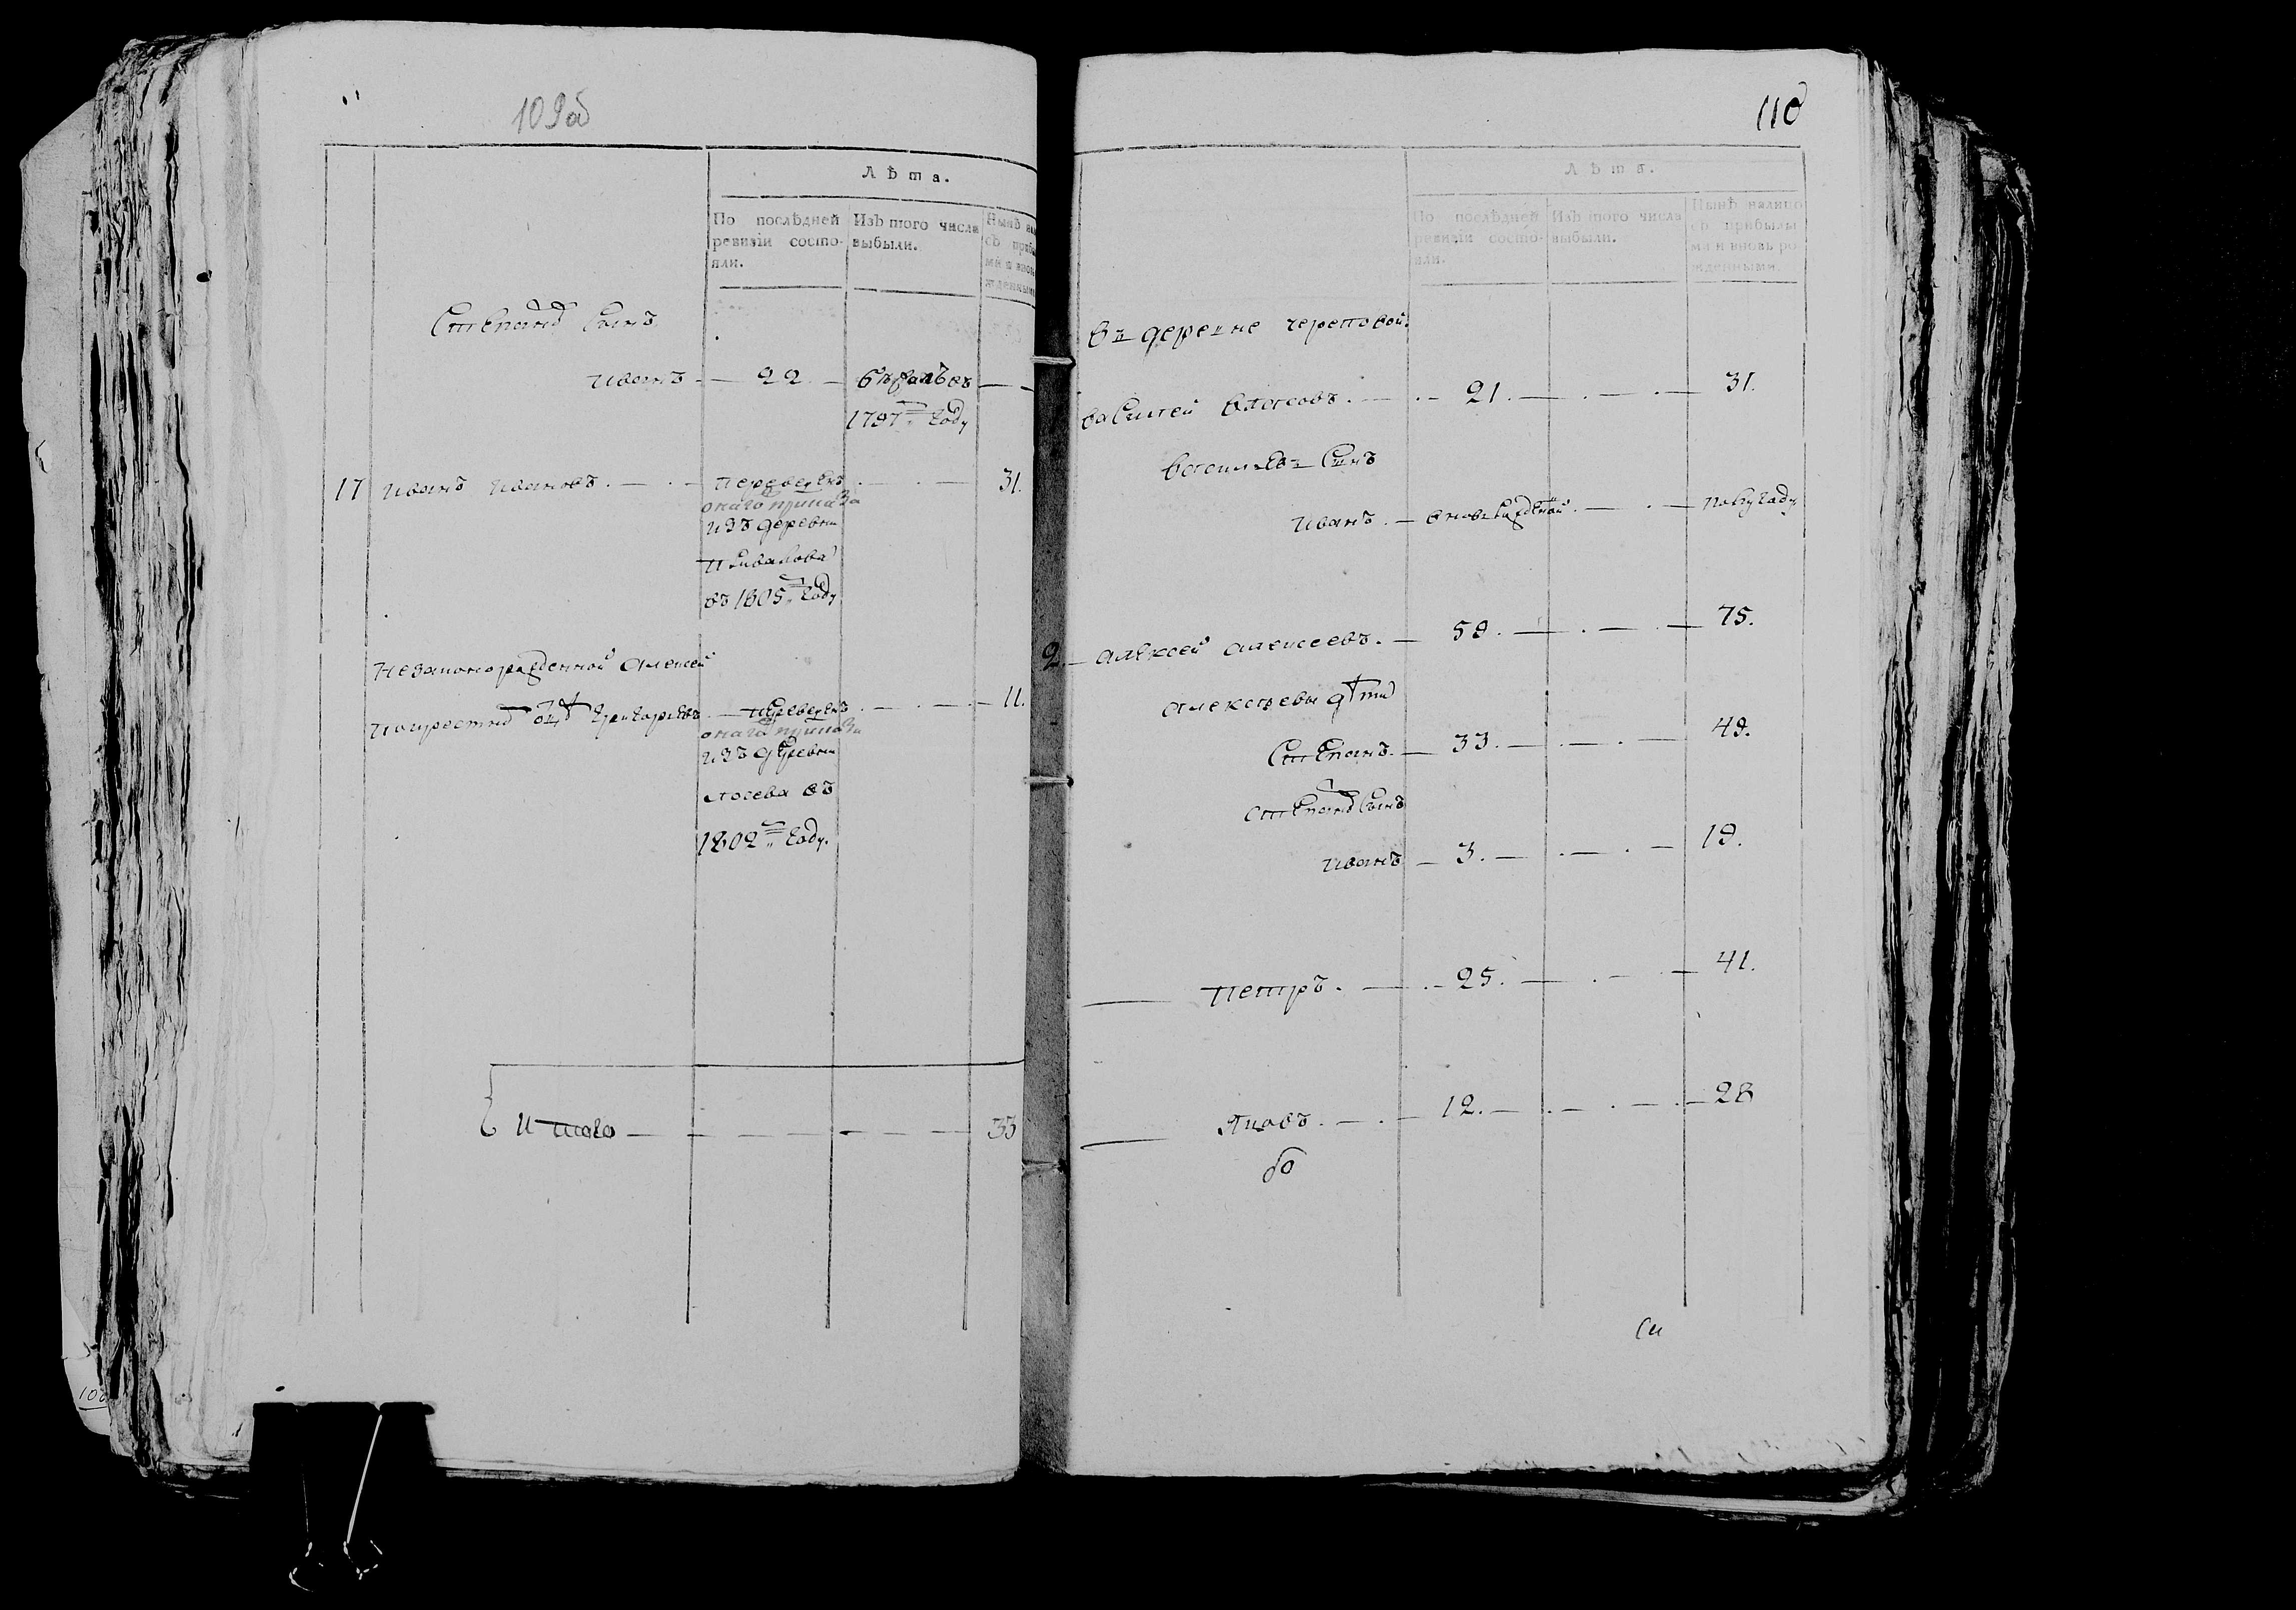 109об
Лѣта.
По послѣдней ревизіи состояли.
Изъ того числа выбыли.
Степана Сынъ
Иванъ — 22 —
1797 году
17 Иванъ Ивановъ — переведенъ — 31.
онаго приказа
изъ деревни
въ 1805 году
Незаконорожденной Алексей
по крестному отцу Григорьевъ — переведенъ — 11.
онаго приказа
изъ деревни
Лосева въ
1802 году.
Итого — 33
110
Лѣта.
По послѣдней ревизіи состояли.
Изъ того числа выбыли.
Нынѣ налицо съ прибылыми и вновь рожденными.
въ деревне Череповой.
Василей Власовъ. — 21. — 31.
Васильевъ Сынъ
Иванъ. — вновь рожденной. — полугоду
2. Алексей Алексеевъ. — 59. — 75.
Алексеевы дѣти
Степанъ. — 33. — 49.
Степана Сынъ
Иванъ — 3. — 19.
Петръ. — 25. — 41.
Яковъ. — 12. — 28